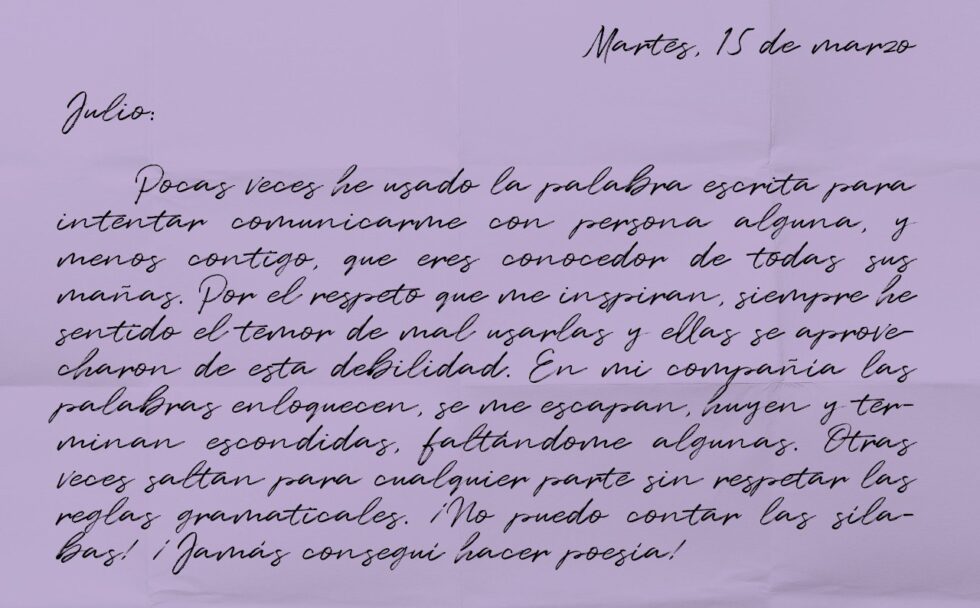 Martes, 15 de marzo
Julio:
Pocas veces he usado la palabra escrita para
intentar comunicarme con persona alguna, y
menos contigo, que eres conocedor de todas sus
mañas. Por el respeto que me inspiran, siempre he
sentido el temor de mal usarlas y ellas se aprove-
charon de esta debilidad. En mi compañía las
palabras enloquecen, se me escapan, huyen y ter-
minan escondidas, faltándome algunas. Otras
veces saltan para cualquier parte sin respetar las
reglas gramaticales. ¡No puedo contar las síla-
bas! ¡Jamás conseguí hacer poesía!